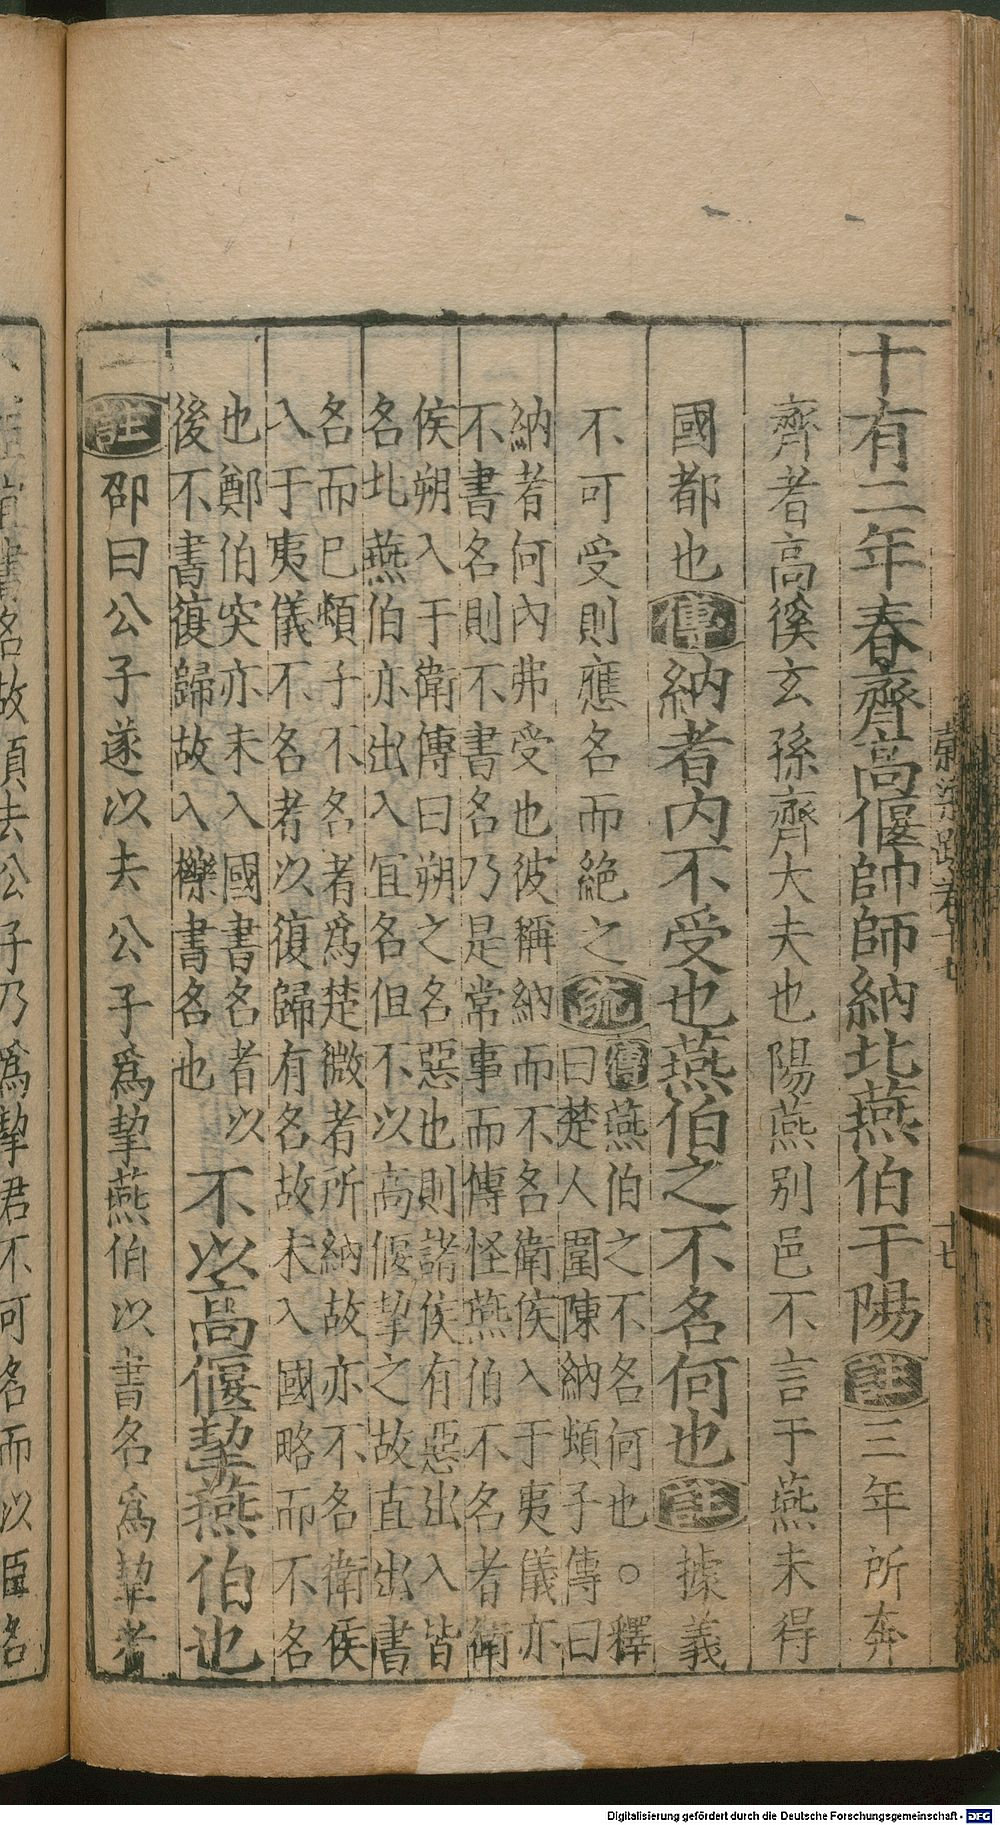 十有二年春齊高偃帥師納北燕伯于陽註三年所奔
齊者高傒玄孫齊大夫也陽燕别邑不言于燕未得
國都也傳納者内不受也燕伯之不名何也註據義
不可受則應名而絶之疏
傳燕伯之不名何也○釋
曰楚人圍陳納頓子傳曰
納者何內弗受也彼稱納而不名衛侯入于夷儀亦
不書名則不書名乃是常事而傳怪燕伯不名者衛
侯朔入于衛傳曰朔之名惡也則諸侯有惡出入皆
名北燕伯亦出入宜名但不以高偃挈之故直出書
名而已頓子不名者爲楚微者所納故亦不名衛侯
入于夷儀不名者以復歸有名故未入國略而不名
也鄭伯突亦未入國書名者以
後不書復歸故入櫟書名也
不以高偃挈燕伯也
註邵曰公子遂以去公子爲挈燕伯以書名爲挈者
宜書名故須去公子乃爲挈君不可名而以臣名
Digitalisierung gefördert durch die Deutsche Forschungsgemeinschaft - DFG